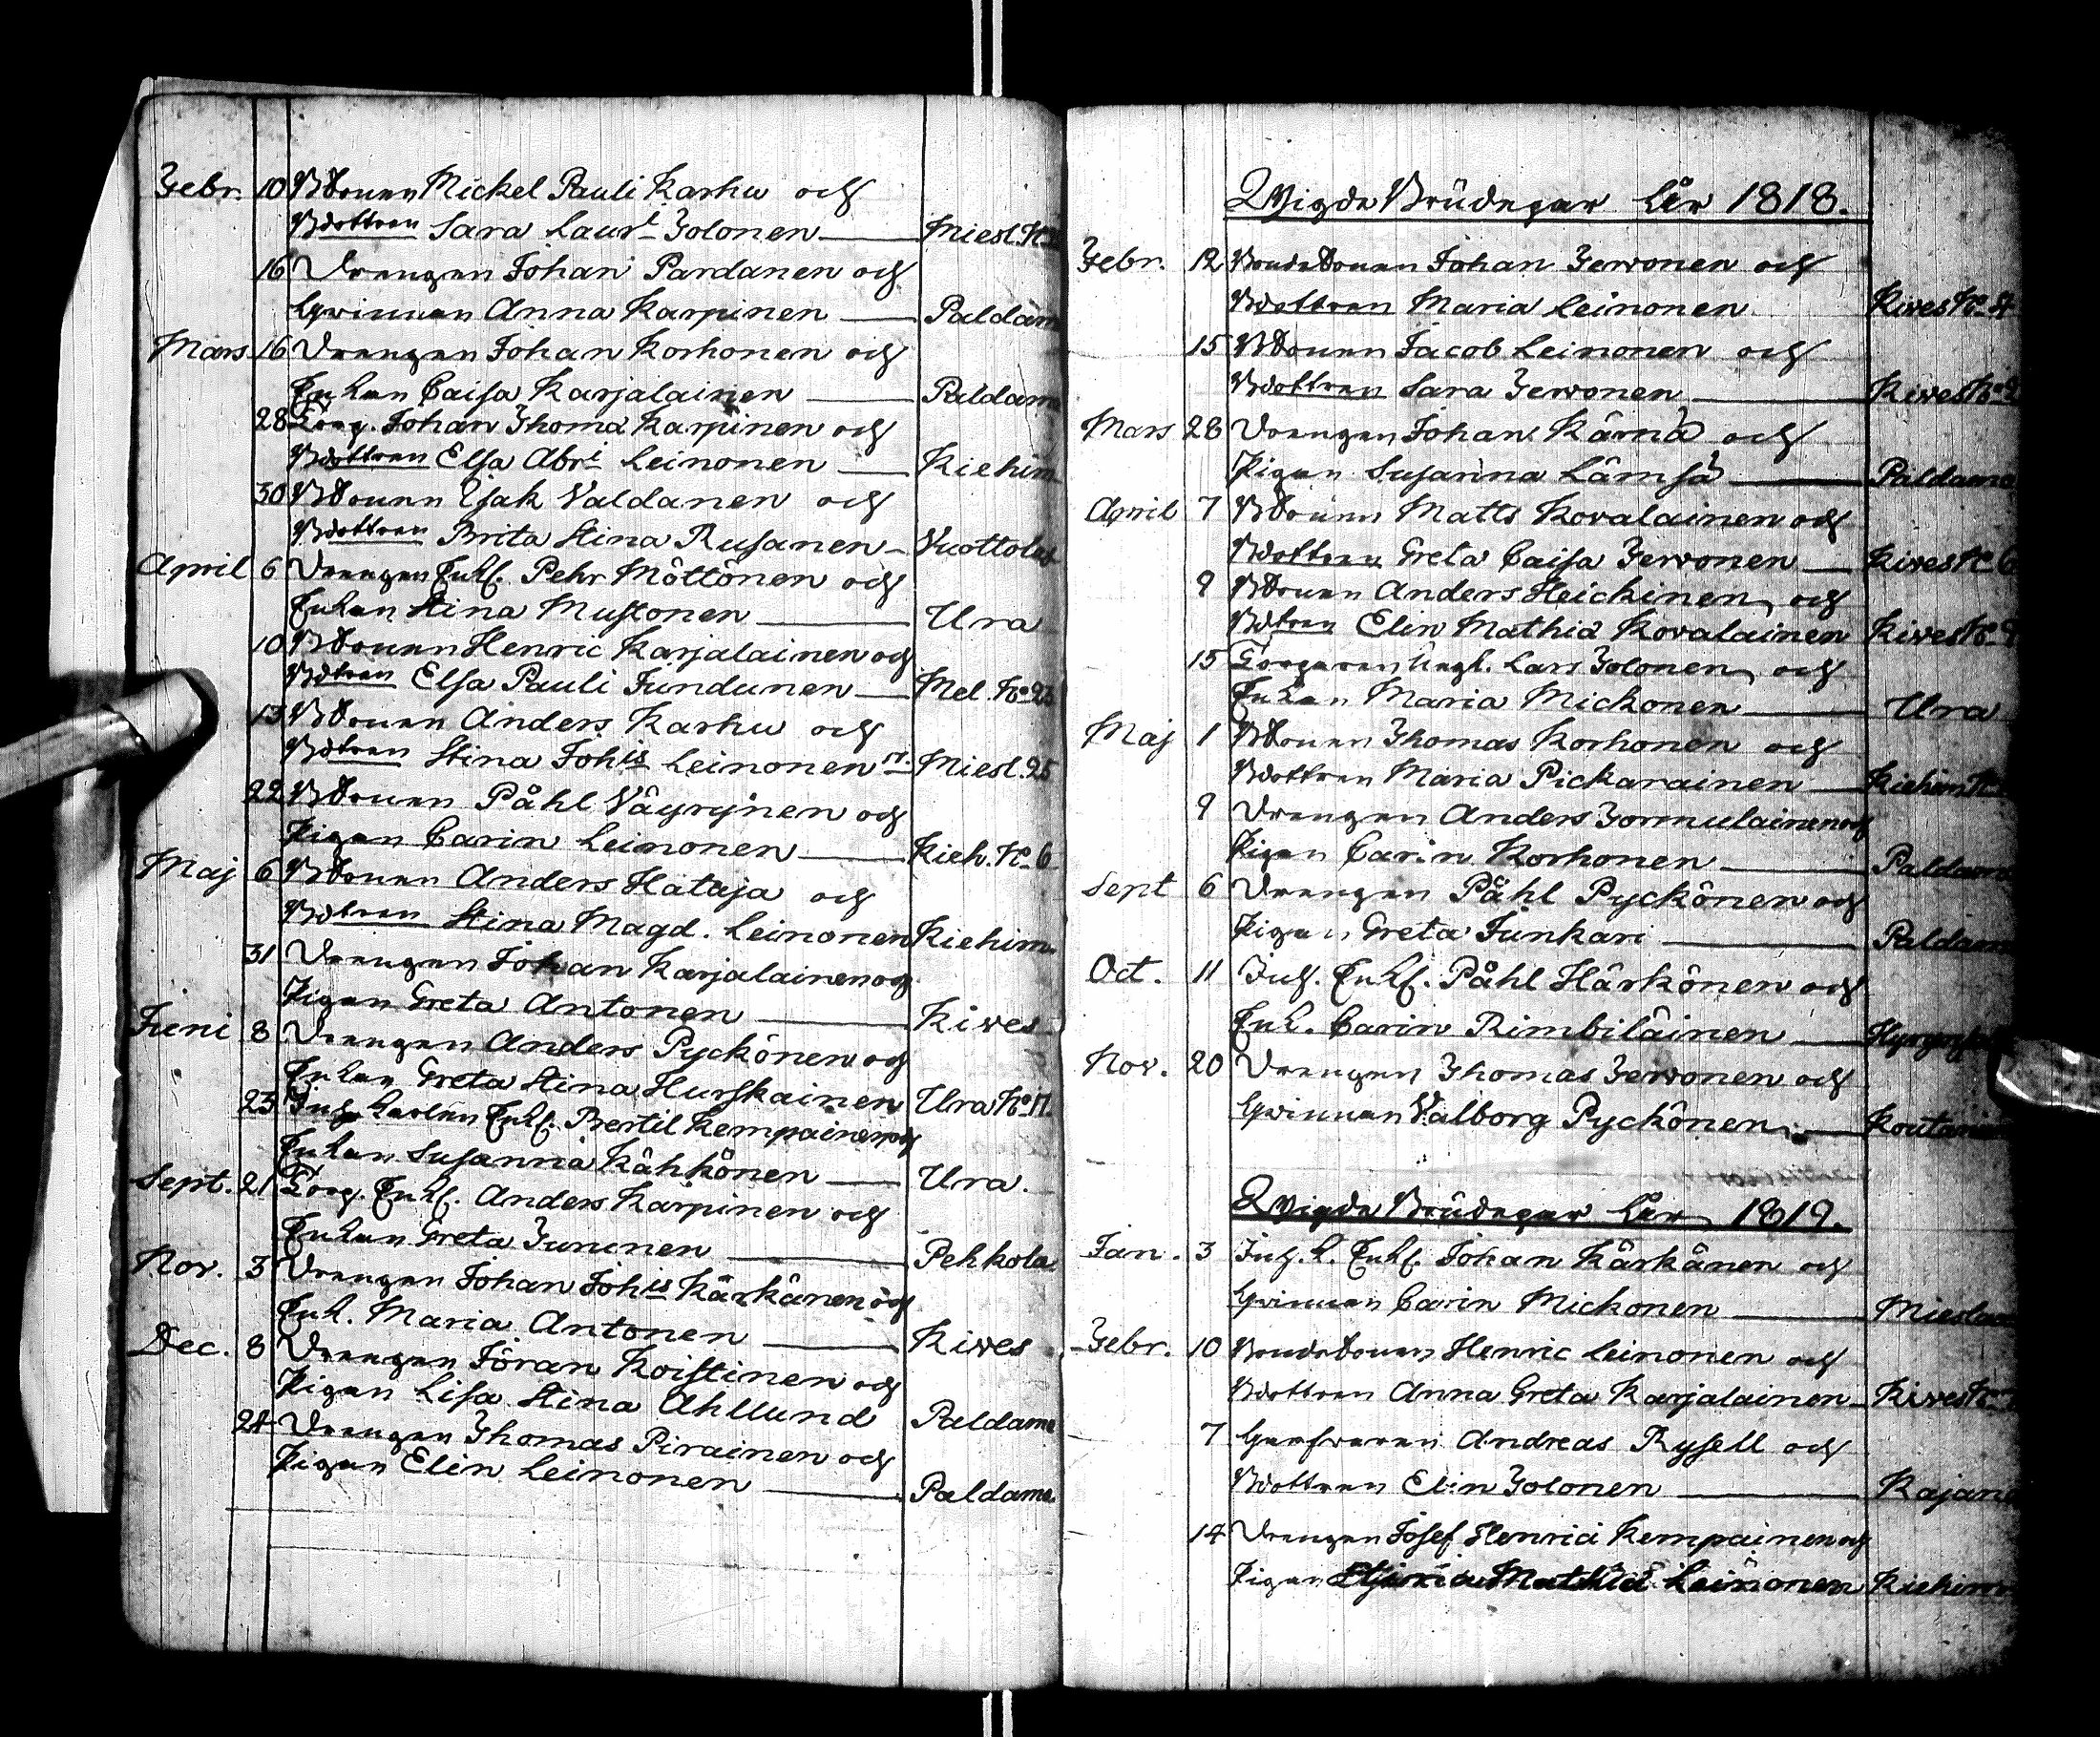 Febr. 10 BSonen Mickel Pauli Karhu och
Bdottren Sara Laurt Tolonen — Miesl. No
16 Drengen Johan Pardanen och
Qvinnan Anna Karpinen — Paldam
Mars 16 Drengen Johan Korhonen och
Enkan Caisa Karjalainen — Paldam
28 Torp. Johan Thomæ Karpinen och
Bdottren Elsa Abri Leinonen — Kiehim
30 BSonen Isak Valdanen och
Bdottren Brita Stina Rusanen — Vuottola
April 6 Drengen Enkl. Pehr Möttönen och
Enkan Stina Mustonen — Ura
10 BSonen Henric Karjalainen och
Bdtren Elsa Pauli Jundunen — Mel. No 23
13 BSonen Anders Karhu och
Bdtren Stina Johis Leinonen — Miesl. 25
22 BSonen Påhl Väyrynen och
Pigan Carin Leinonen — Kieh. No 6
Maj 6 BSonen Anders Hataja och
Bdtren Stina Magd. Leinonen Kiehim.
31 Drengen Johan Karjalainen och
Pigan Greta Antonen — Kives
Juni 8 Drengen Anders Pyckönen och
Enkan Greta Stina Hurskainen Ura No 17.
23 Inh. Karlen Enkl. Bertil Kempainen och
Enkan Susanna Kähkönen — Ura.
Sept. 21 Torp. Enkl. Anders Karpinen och
Enkan Greta Juninen — Pehkola
Nov. 3 Drengen Johan Johis Kärkänen och
Enk. Maria Antonen — Kives
Dec. 8 Drengen Jöran Koistinen och
Pigan Lisa Stina Ahllund Paldamo
24 Drengen Thomas Pirainen och
Pigan Elin Leinonen — Paldamo
Wigde Brudepar År 1818.
Febr. 12 BondeSonen Johan Jervonen och
Bdottren Maria Leinonen Kives No 4
15 BSonen Jacob Leinonen och
Bdottren Sara Jervonen — Kives No
Mars 28 Drengen Johan Kärnä och
Pigan Susanna Lämsä — Paldamo
April 7 BSonen Matts Kovalainen och
Bdottren Greta Caisa Jervonen — Kives No 6
9 BSonen Anders Heickinen och
Bdtren Elin Mathiæ Kovalainen Kives No
15 Torparen Lars Tolonen och
Enkan Maria Mickonen — Ura
Maj 1 BSonen Thomas Korhonen och
Bdottren Maria Pickarainen — Kiehim No
9 Drengen Anders Tormulainen och
Pigan Carin Korhonen — Paldam
Sept 6 Drengen Påhl Pyckönen och
Pigan Greta Junkari — Paldam
Oct. 11 Inh. Enkl. Påhl Härkönen och
Enk. Carin Rimbiläinen —
Nov. 20 Drengen Thomas Jervonen och
Qvinnan Valborg Pyckönen — Koutan
Wigde Brudepar År 1819.
Jan. 3 Inh. K. Enkl. Johan Kärkänen och
Qvinnan Carin Mickonen — Mieslax
Febr. 10 BondeSonen Henric Leinonen och
Bdottren Anna Greta Karjalainen — Kives No
7 Garfvaren Andreas Rysell och
Bdottren Elin Tolonen — Kajana
14 Drengen Josef Henrici Kempainen och
Pigan Mathiæ Leinonen Kiehim